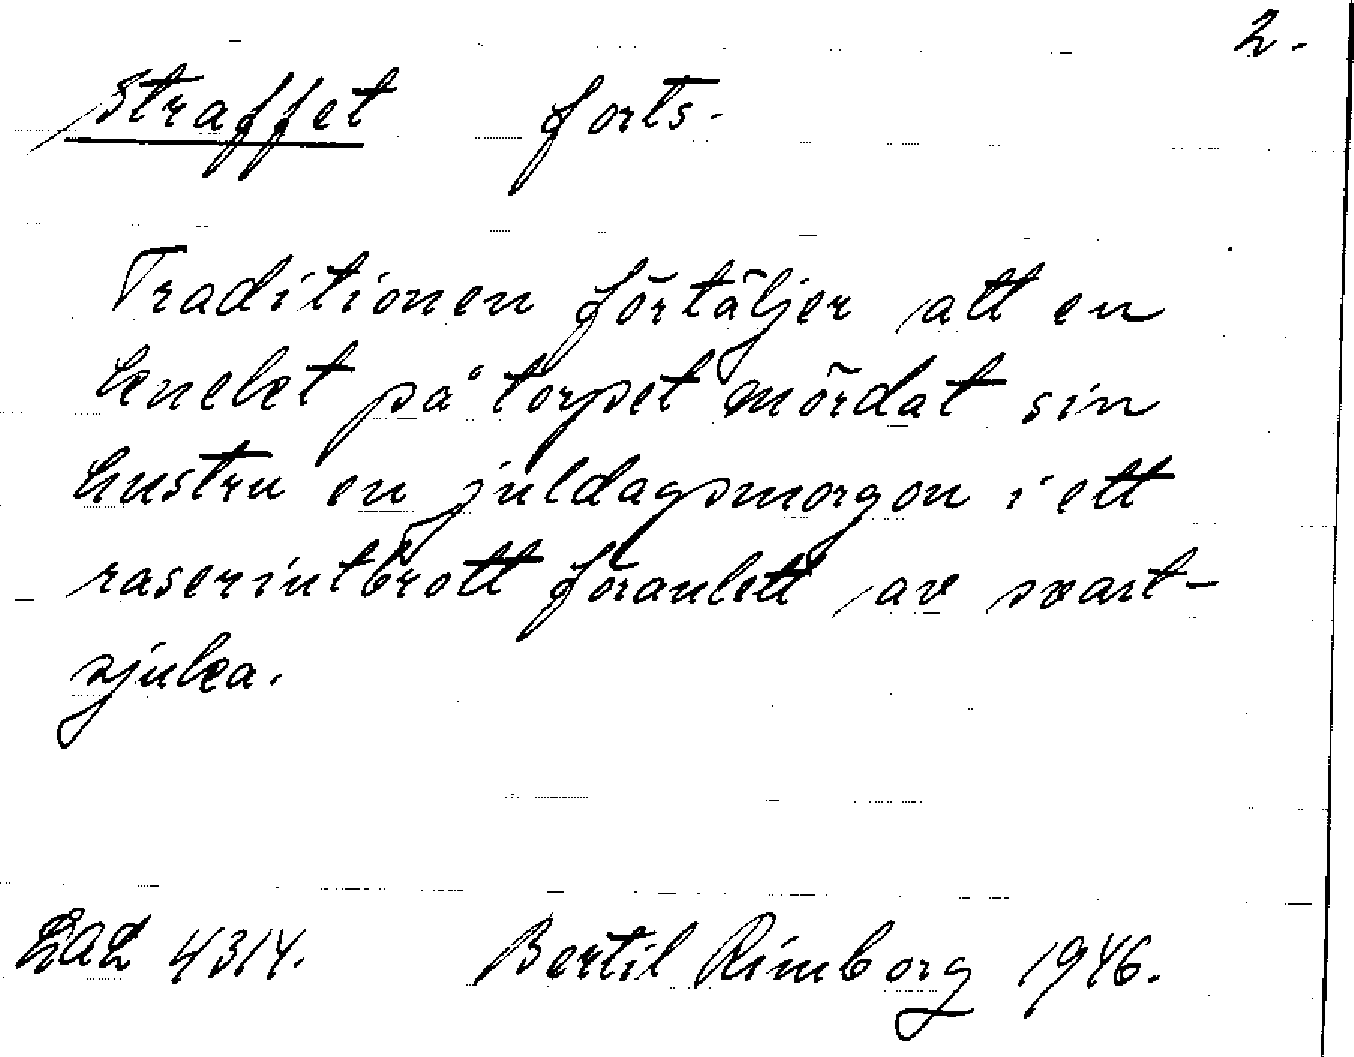 2.
Straffet forts.
Traditionen förtäljer att en
knekt på torpet mördat sin
hustru en juldagsmorgon i ett
raseriutbrott föranlett av svart-
sjuka.
4314. Bertil Rimborg 1946.